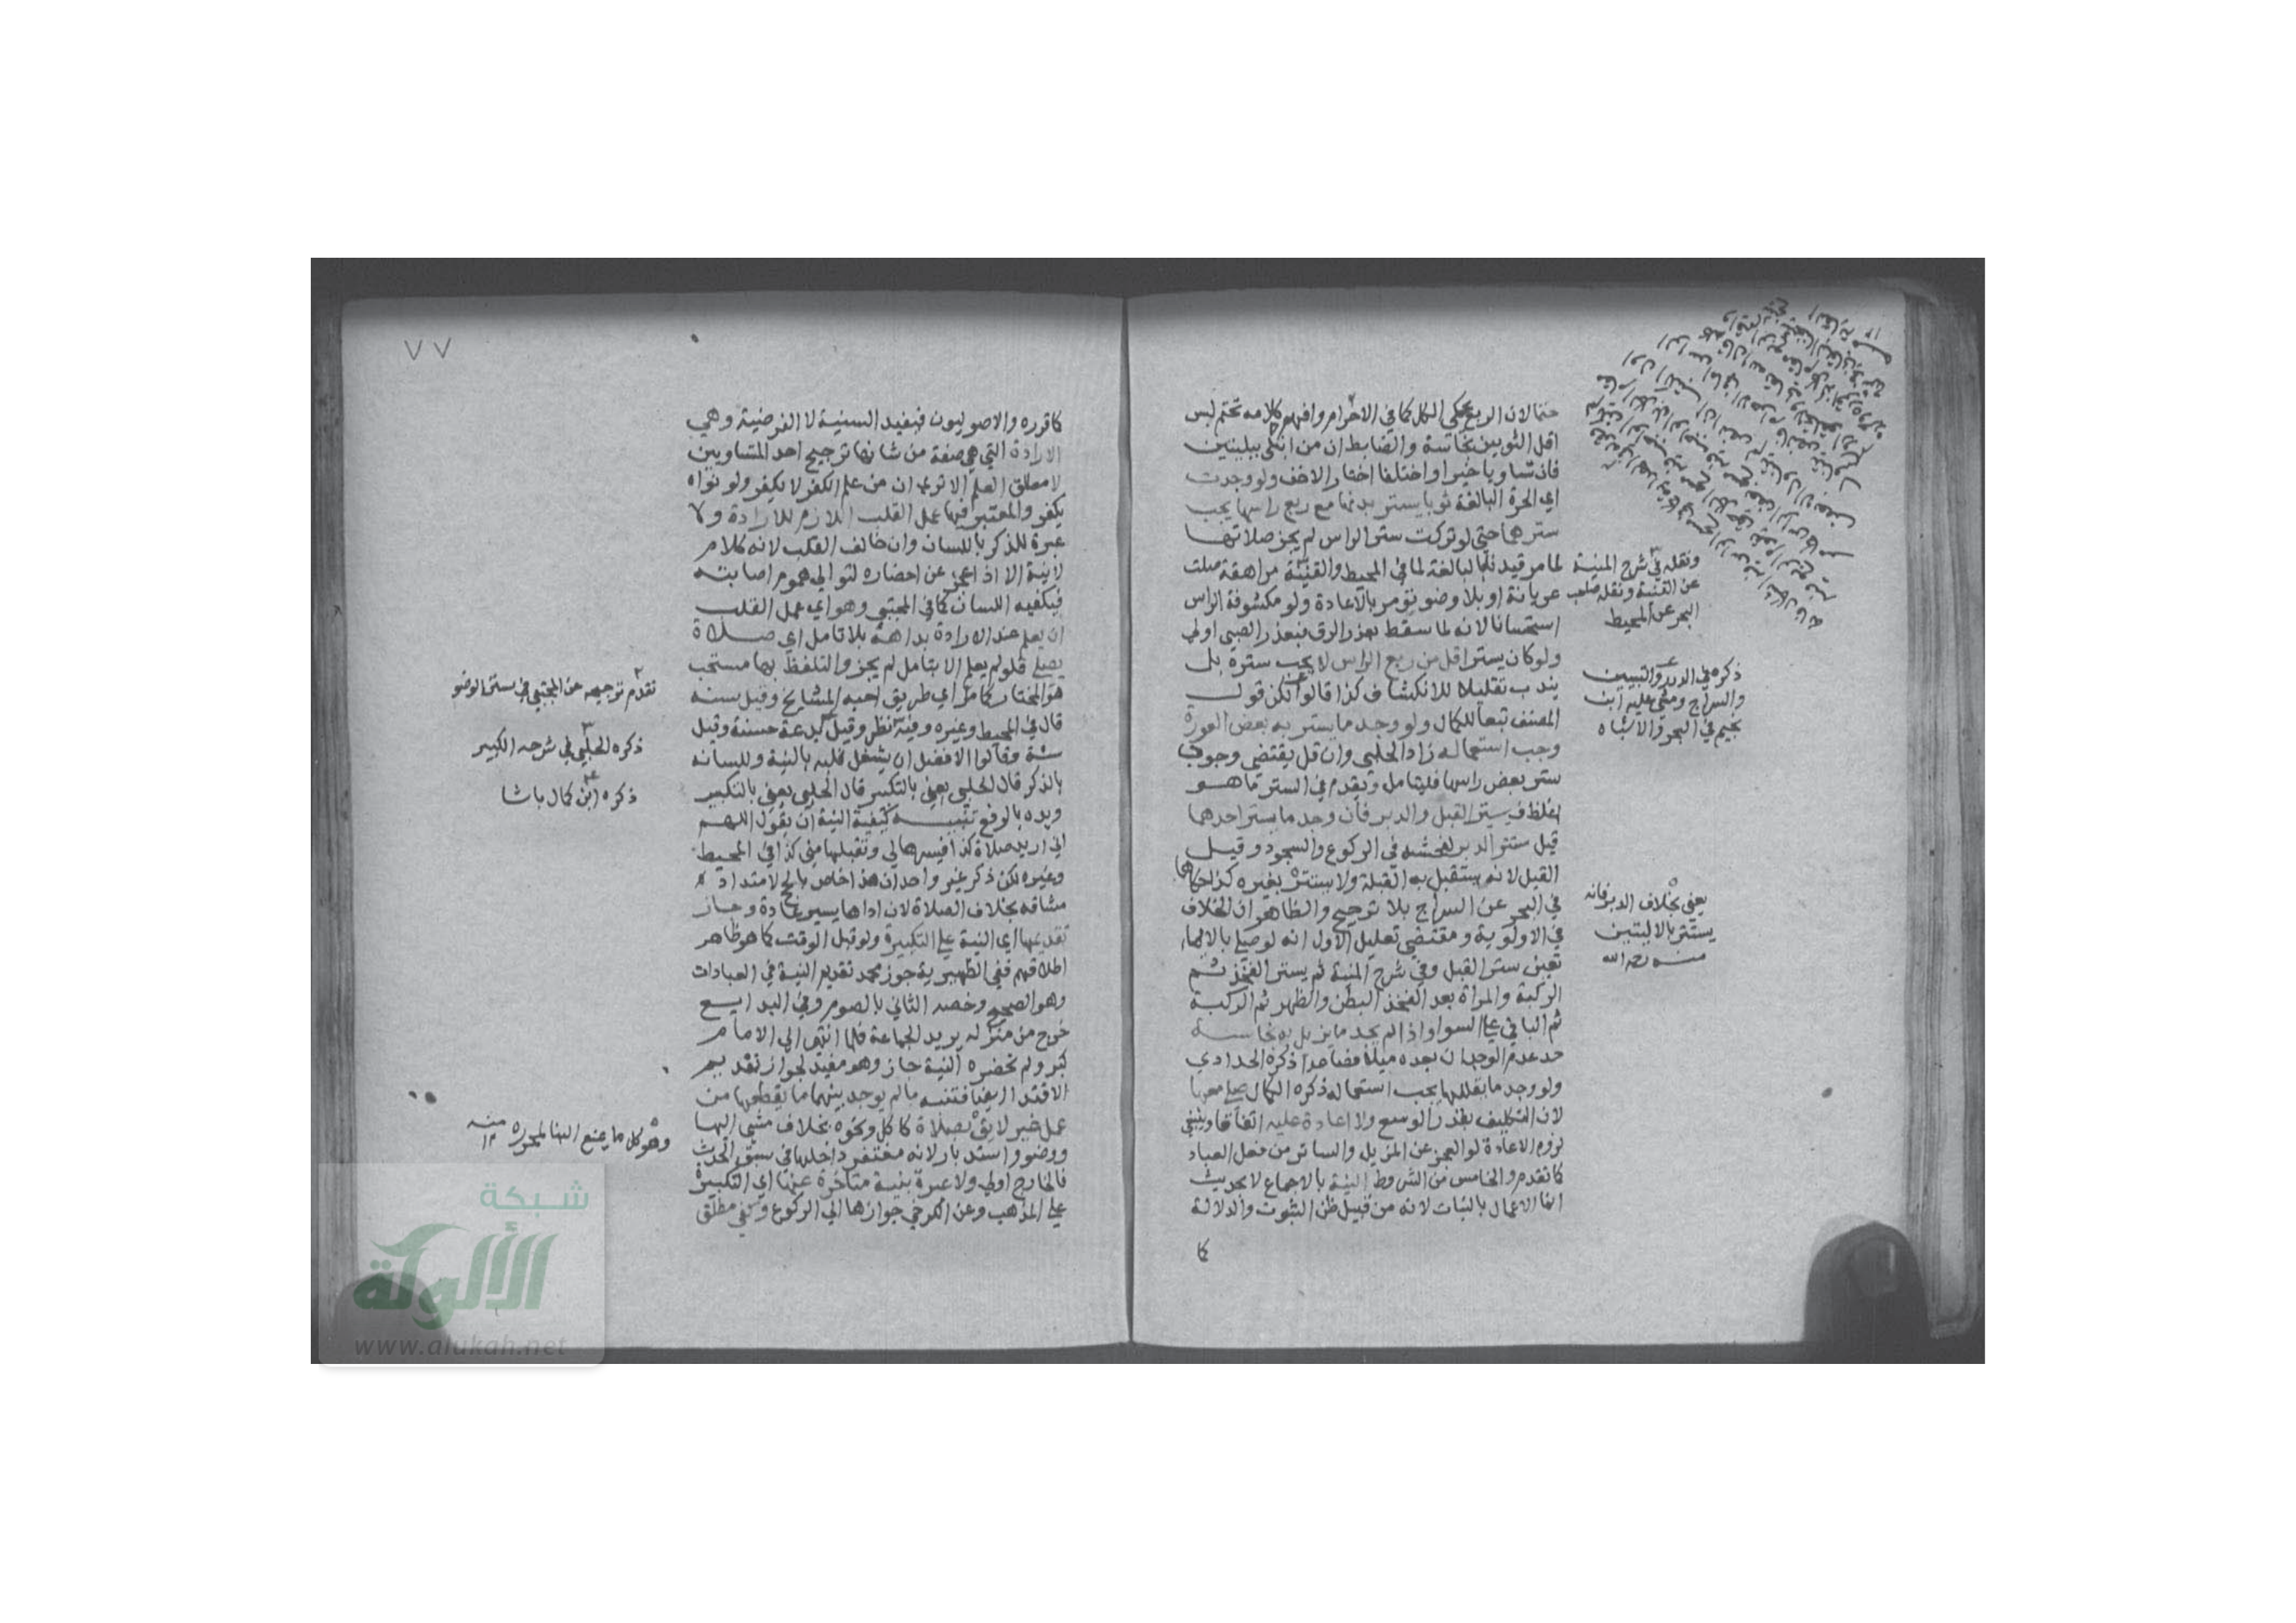 حتما لان الربع يحكي الكل كما في الاحرام وافهم كلامه تحتم لبس
اقل الثوبين نجاسة والضابط ان من ابتلى ببليتين
فان تساويا خير او اختلفا اختار الاخف ولو وجدت
اي الحرة البالغة ثوبا يستر بدنها مع ربع راسها يجب
سترهما حتى لو تركت ستر الراس لم يجز صلاتها
لما مر قيدنا بالبالغة لما في المحيط والقنية مراهقة صلت
عريانة او بلا وضو تؤمر بالاعادة ولو مكشوفة الراس
استحسانا لانه لما سقط بعذر الرق فبعذر الصبي اولى
ولو كان يستر اقل من ربع الراس لا يجب ستره بل
يندب تقليلا للانكشاف كذا قالوا لكن قول
المصنف تبعا للكمال ولو وجد ما يستر به بعض العورة
وجب استعماله زاد الحلبي وان قل يقتضي وجوب
ستر بعض راسها فليتامل ويقدم في الستر ما هو
اغلظ فيستر القبل والدبر فان وجد ما يستر احدهما
قيل ستتر الدبر لفحشه في الركوع والسجود وقيل
القبل لانه يستقبل به القبلة ولا يستتر بغيره كذا حكاهما
في البحر عن السراج بلا ترجيح والظاهر ان الخلاف
في الاولوية ومقتضى تعليل الاول انه لو صلى بالايماء
تعين ستر القبل وفي شرح المنية ثم يستر الفخذ ثم
الركبة والمراة بعد الفخذ البطن والظهر ثم الركبة
ثم الباقي على السوا واذا لم يجد ما يزيل به نجاسة
حد عدم الوجدان بعده ميلا فصاعدا ذكره الحدادي
ولو وجد ما يقللها يجب استعماله ذكره الكمال صلى معها
لان التكليف بقدر الوسع ولا اعادة عليه اتفاقا وينبغي
لزوم الاعادة لو العجز عن المزيل والساتر من فعل العباد
كما تقدم والخامس من الشروط النية بالاجماع لا بحديث
انما الاعمال بالنيات لانه من قبيل ظن الثبوت والدلالة
كما
ونقله في شرح المنية
عن القنية ونقله صاحب
البحر عن المحيط
ذكره في الدرر والتبيين
والسراج ومشى عليه ابن
نجيم في البحر والاشباه
يعني بخلاف الدبر فانه
يستتر بالاليتين
منه رحمه الله
٧٧
كما قرره والاصوليون فيفيد السنية لا الفرضية وهي
الارادة التي هي صفة من شانها ترجيح احد المتساويين
لا مطلق العلم الا ترى ان من علم الكفر لا يكفر ولو نواه
يكفر والمعتبر فيها عمل القلب اللازم للارادة ولا
عبرة للذكر باللسان وان خالف القلب لانه كلام
لا نية الا اذا عجز عن احضاره لتوالي هموم اصابته
فيكفيه اللسان كما في المجتبى وهو اي عمل القلب
ان يعلم عند الارادة بداهة بلا تامل اي صلاة
يصلي فلو لم يعلم الا بتامل لم يجز والتلفظ بها مستحب
هو المختار كما مر اي طريق احبه المشايخ وقيل سنة
قال في المحيط وغيره وفيه نظر وقيل بدعة حسنة وقيل
سنة وقالوا الافضل ان يشغل قلبه بالنية ولسانه
بالذكر قال الحلبي يعني بالتكبير قال الحلبي يعني بالتكبير
ويده بالرفع تنبيه كيفية النية ان يقول اللهم
اني اريد صلاة كذا فيسرها لي وتقبلها مني كذا في المحيط
وغيره لكن ذكر غير واحد ان هذا خاص بالحج لامتداد
مشاقه بخلاف الصلاة لان اداها يسير عادة وجاز
تقديمها اي النية على التكبيرة ولو قبل الوقت كما هو ظاهر
اطلاقهم ففي الظهيرية جوز محمد تقديم النية في العبادات
وهو الصحيح وخصه الثاني بالصوم وفي البدايع
خرج من منزله يريد الجماعة فلما انتهى الى الامام
كبر ولم تحضره النية جاز وهو مفيد لجواز تقديم
الاقتدا ايضا فتنبه ما لم يوجد بينهما ما يقطعها من
عمل غير لايق بصلاة كاكل ونحوه بخلاف مشي اليها
ووضو واستدبار لانه مغتفر داخلها في سبق الحدث
فالخارج اولى ولا عبرة بنية متاخرة عنها اي التكبيرة
على المذهب وعن الكرخي جوازها الى الركوع وكفى مطلق
تقدم توجيهه عن المجتبى في سنن الوضو
ذكره الحلبي في شرحه الكبير
ذكره ابن كمال باشا
وهو كل ما يمنع البنا لمحرره منه ١٢
شبكة
الألوكة
www.alukah.net